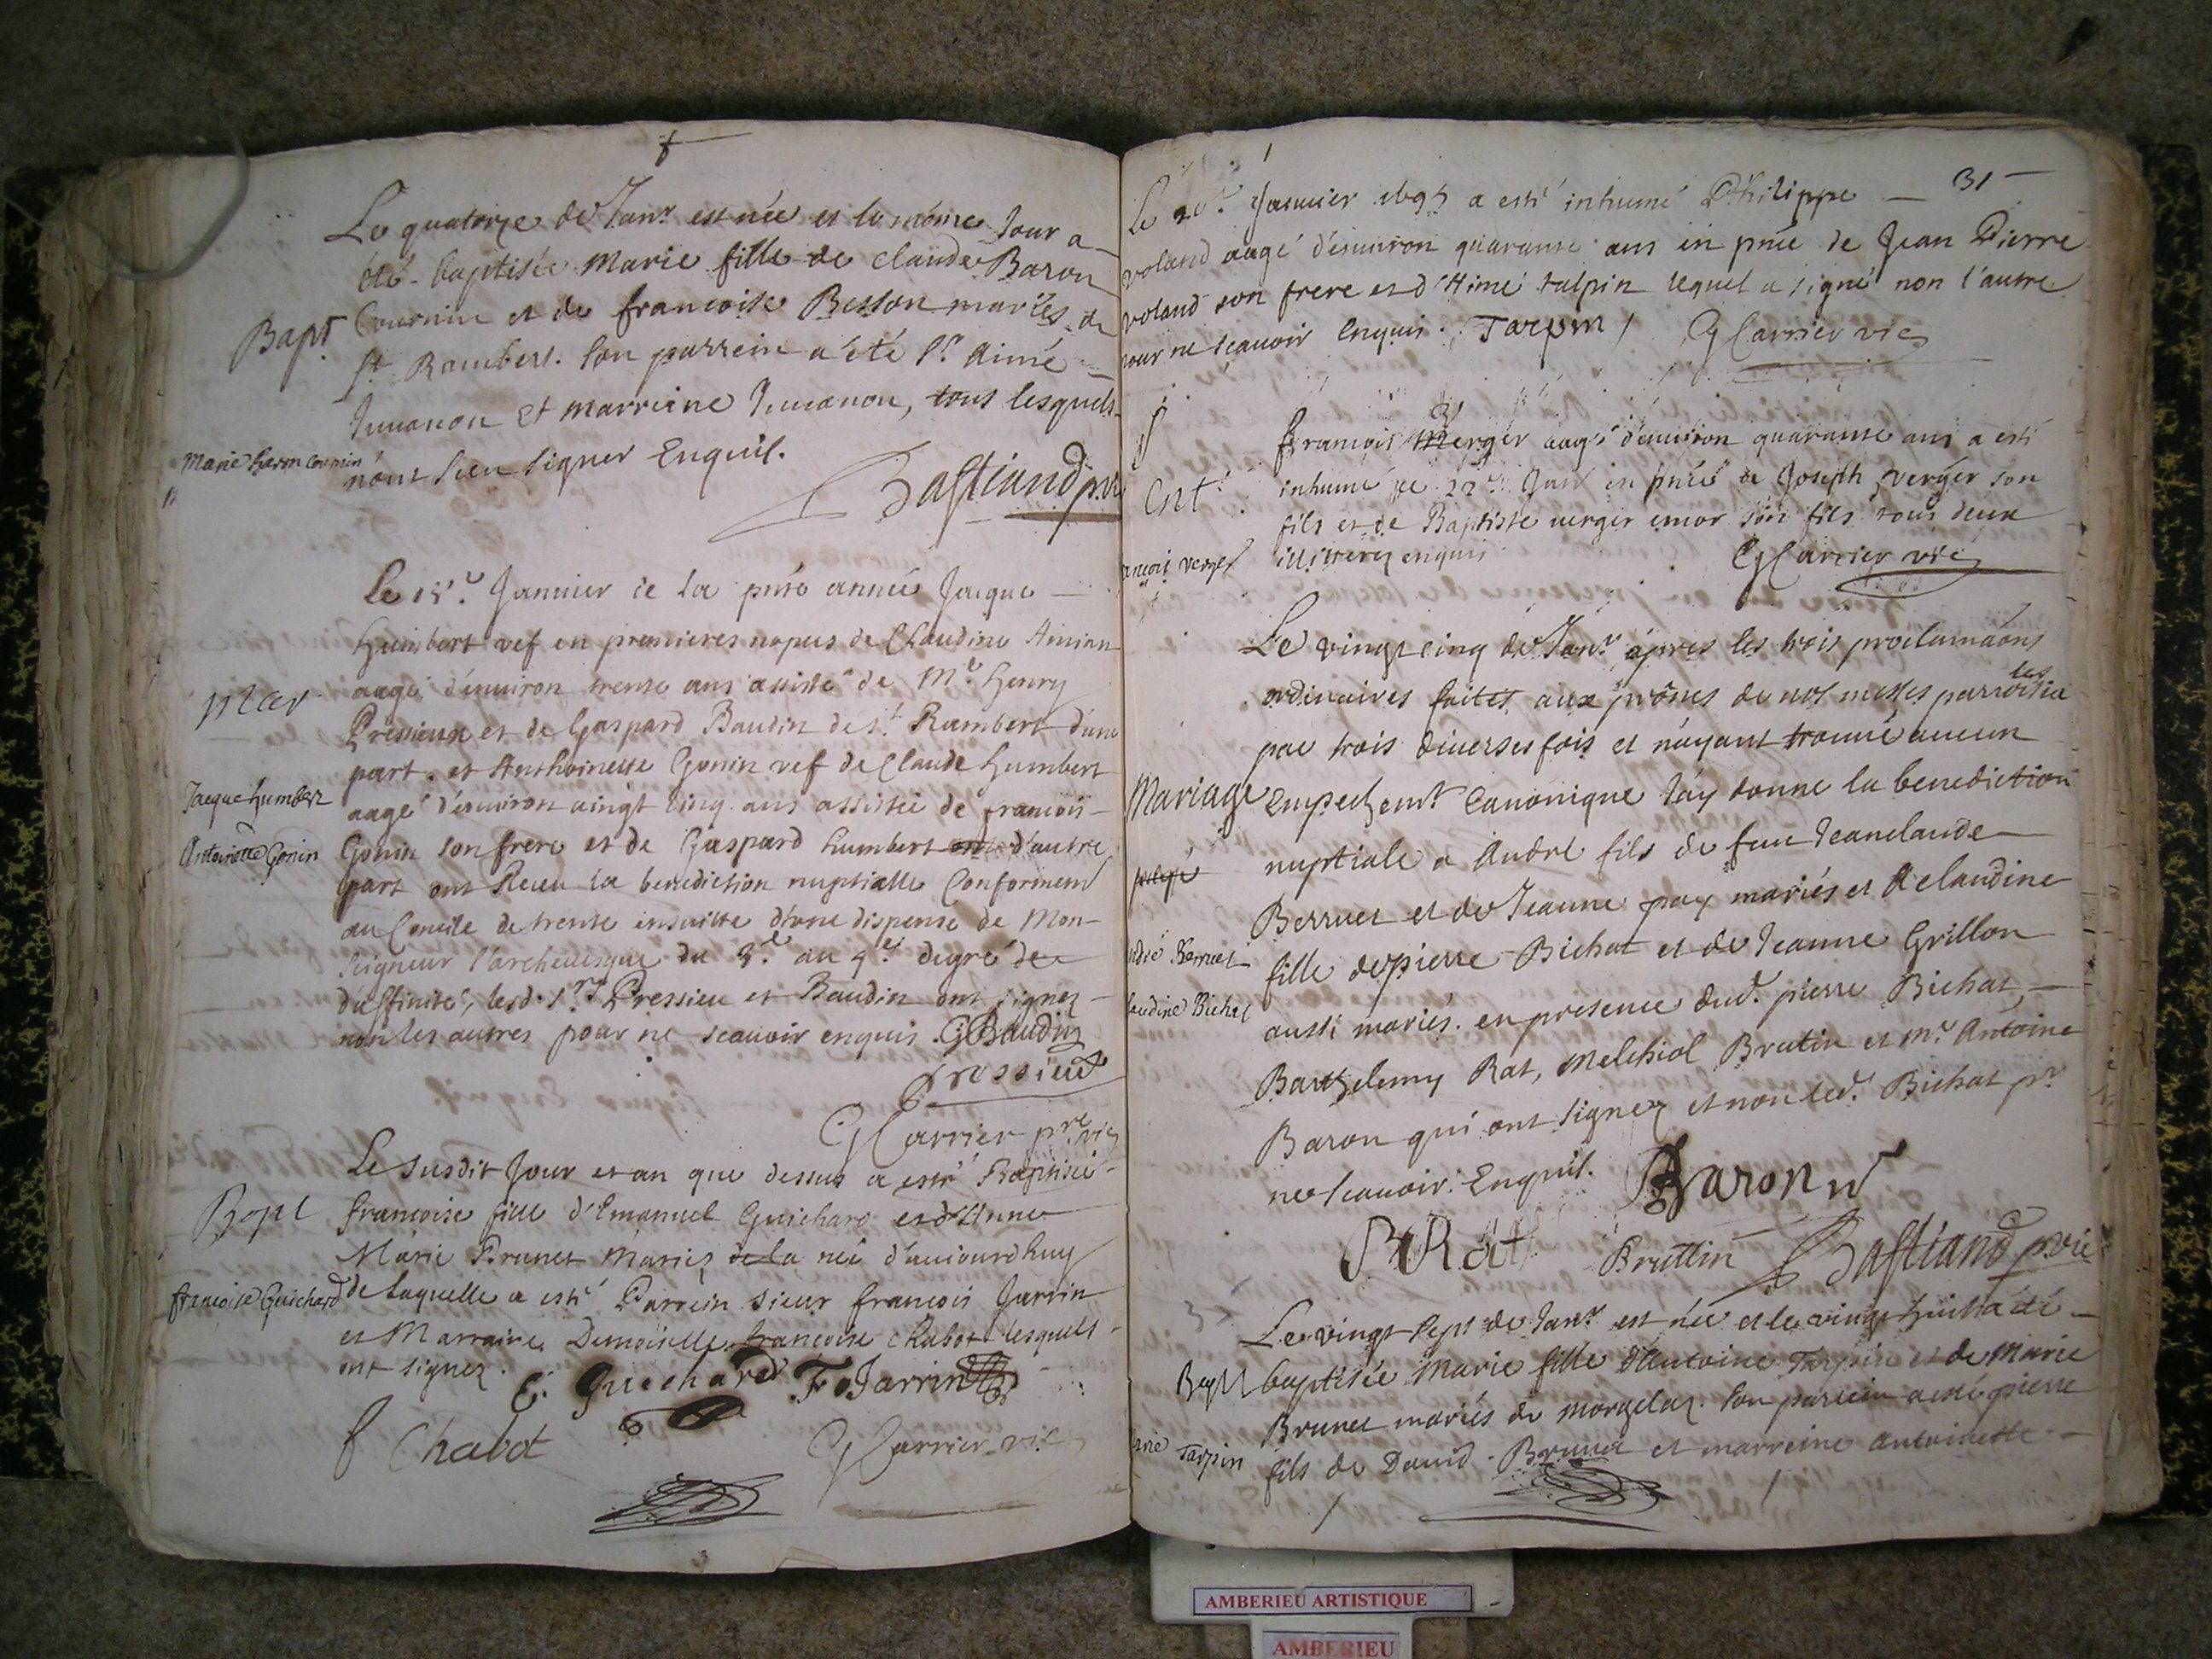 Le quatorze de Janr est née et le même Jour a
été baptisée Marie fille de claude Baron
Cournin et de francoise Besson mariés de
Bapt
St Rambert. Son parrein a été Sr Aimé
Juuanon et marreine Juuanon, tous lesquels
Marie Baron
n'ont sceu signer Enquis.
Bastiand p.vi
Le 15e Januier de la pnte année Jacque
Humbert vef en premieres nopces de Claudine
aagé d'enuiron trente ans assisté de Mre Henry
Mar
Pressieux et de Gaspard Baudin de St Rambert d'une
part. et Anthoinette Gonin vef de Claude Humbert
Jacque humbert
aagé d'enuiron uingt cinq ans assistée de francois
Antoinette Gonin
Gonin son frere et de Gaspard humbert d'autre
part ont Receu la benediction nuptialle Conformemt
au Concile de trente ensuitte d'une dispense de Mon-
seigneur l'archeuesque du 3e au 4e degré de
d'affinité, lesd. Srs Pressieu et Baudin ont signez
non les autres pour ne scauoir enquis. G Baudin
Pressieux
G Carrier pre vic
Le susdit Jour et an que dessus a esté Baptisée
Bapt
francoise fille d'Emanuel Guichard et d'Anne
Marie Brunet Mariez de la née d'auiourdhuy
francoise Guichard
de laquelle a esté Parrein sieur francois Jarrin
et Marraine Demoiselle francoise Chabot lesquels
ont signez.
E. Guichard F Jarrin
f Chabot
G Carrier vic
31
Le 20e Januier 1695 a esté inhumé Philippe
voland aagé d'enuiron quarante ans en pnce de Jean Pierre
voland son frere et d'Aimé talpin lequel a signé non l'autre
pour ne scauoir enquis. Tarpin G Carrier vic
francois Merger aagé d'enuiron quarante ans a esté
Ent
inhumé le 22e Janr en pnce de Joseph verger son
fils et de Baptiste uerger encor son fils tous deux
ancois verger
illitterez enquis
G Carrier vic
Le vingt cinq de Janr apres les trois proclamaons
ordinaires faites aux prônes de nos messes parroissia
les
par trois diuerses fois et n'ayant trouué aucun
Mariage
empechemt Canonique J'ay donné la benediction
nuptiale a André fils de feu Jeanclaude
Berruet et de Jeanne pay mariés et A claudine
ndré Berruet
fille de pierre Bichat et de Jeanne Grillon
laudine Bichat
aussi mariés. en presence dud. pierre Bichat,
Barthelemy Rat, Melchiol Brutin et mre Antoine
Baron qui ont signez et non led. Bichat pr
ne scauoir. Enquis.
Baron
B Rat
Bruttin
Bastiand p.vic
Le vingt sept de Janr est née et le vingt huit a été
Bapt
baptisée Marie fille d'Antoine Tarpin et de Marie
Brunet mariés de morgelaz. son parrein a été pierre
arie Tarpin
fils de Dauid Brunet et marreine Antoinette
AMBERIEU ARTISTIQUE
AMBERIEU